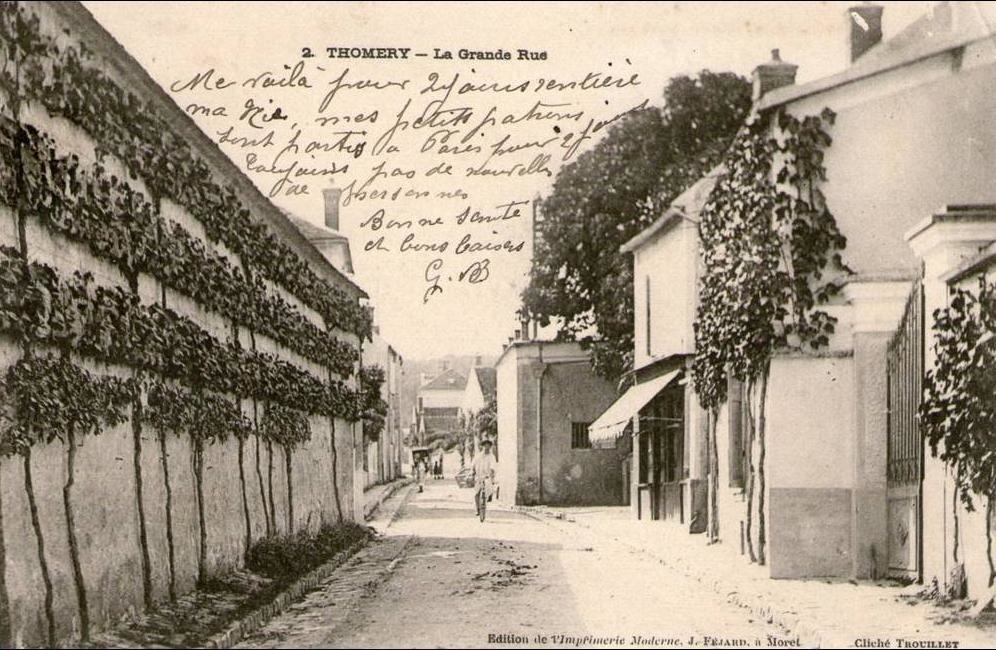 2. THOMERY — La Grande Rue
Me voilà pour 2 jours rentière
ma Nie, mes petits patrons
sont partis à Paris pour 2 jours
Toujours pas de nouvelles
de personnes
Bonne santé
et bons baisers
G. B
Edition de l'Imprimerie Moderne, J. FÉJARD, à Moret
Cliché TROUILLET